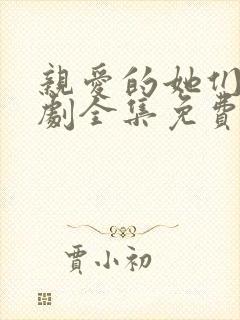 親愛的她们
劇全集免費
賈小初